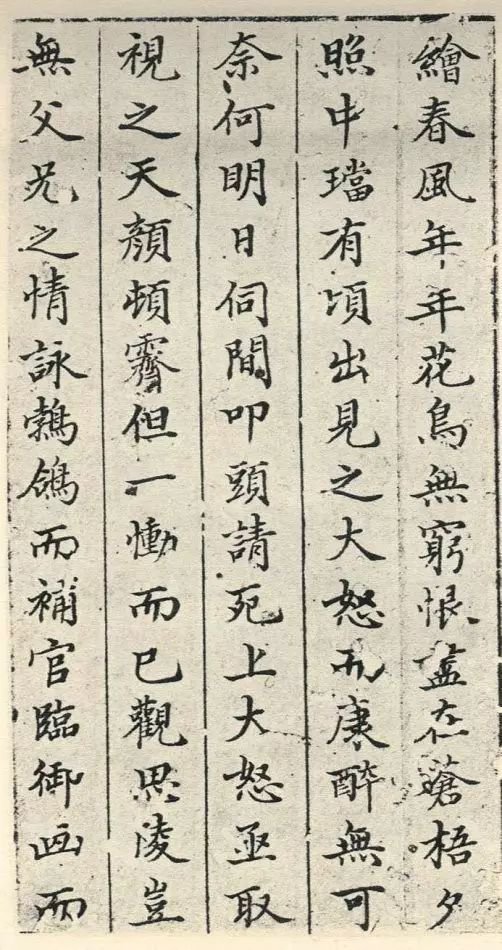 繪春風年年花鳥無窮恨盡在蒼梧夕
照中璫有頃出見之大怒而康醉無可
奈何明日伺間叩頭請死上大怒亟取
視之天顔頓霽但一慟而已觀思陵豈
無父兄之情詠鵓鴿而補官臨御画而